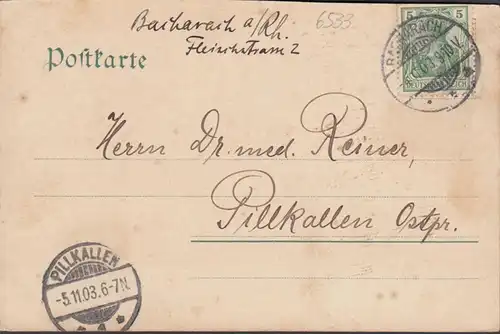 Bacharach a/Rh. 6533
Fleischstrasse 2
Postkarte
5 5
BACHARACH
Herrn Dr. med. Reiner,
Pillkallen Ostpr.
PILLKALLEN
-5.11.03.6-7N.